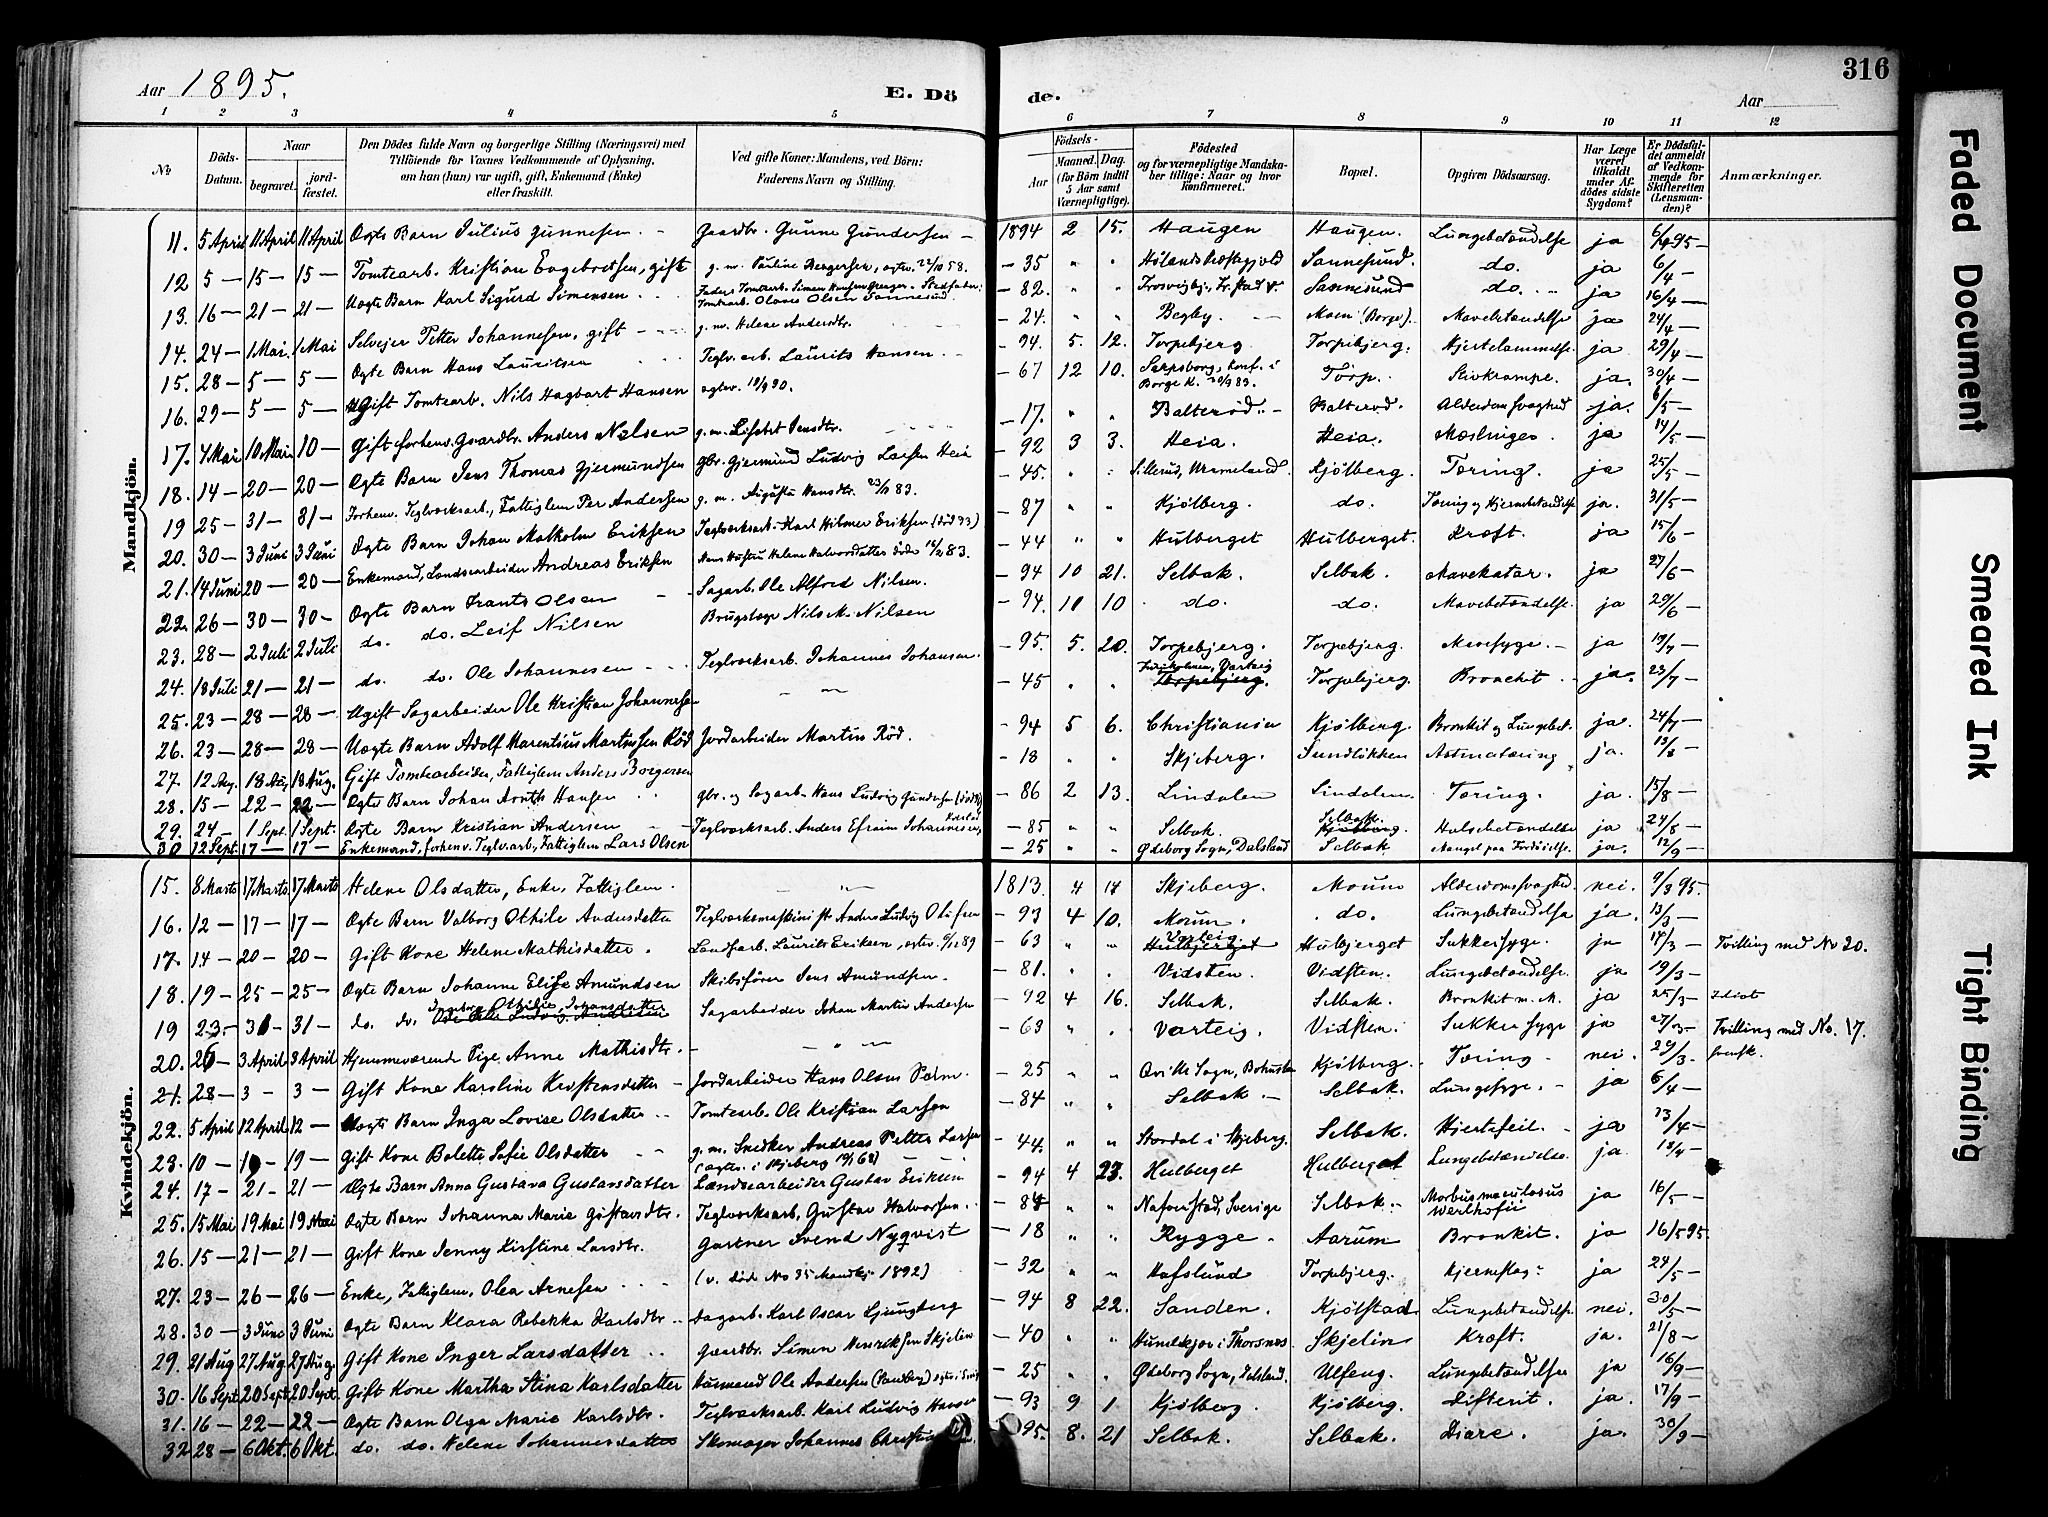 316
Aar 1895.
E. Döde.
Aar
1 2 3 4 5 6 7 8 9 10 11 12
No
Döds-Datum.
Naar
begravet.
jordfæstet.
Den Dödes fulde Navn og borgerlige Stilling (Næringsvei) med Tilföiende for Voxnes Vedkommende af Oplysning, om han (hun) var ugift, gift, Enkemand (Enke) eller fraskilt.
Ved gifte Koner: Mandens, ved Börn: Faderens Navn og Stilling.
Födsels-
Aar
Maaned. Dag.
(for Börn indtil 5 Aar samt Værnepligtige).
Födested
og for værnepligtige Mandskaber tillige: Naar og hvor konfirmeret.
Bopæl.
Opgiven Dödsaarsag.
Har Læge været tilkaldt under Afdödes sidste Sygdom?
Er Dödsfaldet anmeldt af Vedkommende for Skifteretten (Lensmanden)?
Anmærkninger.
Mandkjön.
11. 5 April 11 April 11 April Ægte Barn Julius Gunnesen Gaardbr. Gunne Gundersen 1894 2 15. Haugen Haugen. Lungebetændelse ja 6/4 95
12 5 — 15 — 15 — Tomtearb. Kristian Engebretsen, gift g. m. Pauline Bergersen, — 35 " " Sannesund. do. ja 6/4 —
13. 16 — 21 — 21 — Uægte Barn Karl Sigurd Simensen — 82. " " Sannesund do. ja 16/4 —
14. 24 — 1 Mai. 1 Mai Selveier Petter Johannesen, gift g. m. Helene Andersdtr. — 24. " " Begby. Moen (Borge). Mavebetændelse ja 24/4 —
15. 28 — 5 — 5 — Ægte Barn Hans Lauritsen Teglv. arb. Laurits Hansen — 94. 5. 12. Torpebjerg Torpebjerg. Hjertelammelse. ja 29/4 —
16. 29 — 5 — 5 — Ugift Tomtearb. Nils Hagbart Hansen — 67 12 10. Sarpsborg, konf. i Borge K. Torp. Stivkrampe. ja. 30/4 —
17. 4 Mai 10 Mai 10 — Gift forhenv. Gaardbr. Anders Nilsen — 17. " " Balteröd. Balteröd. Alderdomssvaghed ja. 6/5 —
18. 14 — 20 — 20 — Ægte Barn Jens Thomas Gjermundsen gbr. Gjermund Ludvig Larsen Heia — 92 3 3. Heia. Heia. Mæslinger. ja 14/5 —
19 25 — 31 — 31 — Forhenv. Teglværksarb., Fattiglem Per Andersen g. m. Augusta Hansdtr. — 45. " " Kjölberg. Tæring. ja 25/5 —
20. 30 — 3 Juni 3 Juni Ægte Barn Johan Malkolm Eriksen Teglværksarb. Karl Hilmer Eriksen — 87 " " Kjölberg. do. Tæring og Hjernebetændelse ja. 31/5 —
21. 14 Juni 20 — 20 — Enkemand, Landsearbeider Andreas Eriksen — 44 " " Hulberget Hulberget. Kræft. ja 15/6 —
22. 26 — 30 — 30 — Ægte Barn Frants Olsen Sagarb. Ole Alfred Nilsen. — 94 10 21. Selbak. Selbak. Mavekatar. ja 27/6 —
23. 28 — 2 Juli 2 Juli do. do. Leif Nilsen — 94. 11 10 do. do. Mavebetændelse. ja 29/6 —
24. 18 Juli 21 — 21 — do. do. Ole Johannesen Teglværksarb. Johannes Johansen. — 95. 5. 20. Torpebjerg. Torpebjerg. Mavesyge. ja 19/7 —
25. 23 — 28 — 28 — Ugift Sagarbeider Ole Kristian Johannesen — 45 " " Torpebjerg. Torpebjerg. Bronchit ja. 23/7 —
26. 23 — 28 — 28 — Uægte Barn Adolf Marentius Martinsen Röd Jordarbeider Martin Röd. — 94 5 6. Christiania Kjölberg. Bronkit og Lungebet. ja. 24/7 —
27. 12 Aug. 18 Aug 18 Aug. Gift Tomtearbeider, Fattiglem Anders Borgersen — 18 " " Skjeberg. Sundlökken ja. 13/8 —
28. 15 — 22 — 22 — Ægte Barn Johan Hansen gbr. og Sagarb. Hans Ludvig Gundersen — 86 2 13. Lindalen Lindalen. Tæring. ja. 15/8 —
29. 24 — 1 Sept. 1 Sept. Ægte Barn Kristian Andersen Teglværksarb. Anders Efraim Johannesen — 85 " " Selbak. Selbak. Kjölberg. Halsebetændelse ja 24/8 —
30 12 Sept. 17 — 17 — Enkemand, forhenv. Teglv.arb., Fattiglem Lars Olsen — 25 " " Ödeborg Sogn, Dalsland Selbak Mangel paa Fordöielse ja. 12/9 —
Kvindekjön.
15. 8 Marts 17 Marts 17 Marts Helene Olsdatter, Enke, Fattiglem. — " — 1813. 4 17 Skjeberg. Moum Alderdomssvaghed. nei. 9/3 95.
16. 12 — 17 — 17 — Ægte Barn Valborg Othilie Andersdatter Teglværksmaskinist Anders Ludvig Olufsen — 93 4 10. Moum. do. Lungebetændelse ja. 13/3 —
17. 14 — 20 — 20 — Gift Kone Helene Mathisdatter. Landsarb. Laurits Eriksen — 63 " " Varteig Hulbjerget Hulbjerget Sukkersyge. ja 14/3 — Tvilling med No 20.
18. 19 — 25 — 25 — Ægte Barn Johanne Elise Amundsen Skibsförer Jens Amundsen. — 81. " " Vidsten. Vidsten. Lungebetændelse. ja 19/3 —
19 23. — 31 — 31 — do. do. Ingeborg Othilie Johansdatter Sagarbeider Johan Martin Andersen — 92 4 16. Selbak. Selbak. Bronkit m. M. ja 25/3 — Idiot
20. 26 — 3 April 3 April Hjemmeværende Pige Anne Mathisdtr. — " — — 63 " " Varteig. Vidsten. Sukkersyge ja 27/3 — Tvilling med No. 17.
21. 28 — 3 — 3 — Gift Kone Karoline Kristensdatter Jordarbeider Hans Olsen Palm. — 25 " " Kjölberg Tæring nei. 29/3 — svensk.
22. 5 April 12 April 12 — Uægte Barn Inga Lovise Olsdatter Tomtearb. Ole Kristian Larsen — 84 " " Selbak Selbak. Lungesyge. ja 6/4 —
23. 10 — 19 — 19 — Gift Kone Bolette Sofie Olsdatter g. m. Snedker Andreas Petter Larsen — 44. " " Stordal i Skjeberg. Selbak. Hjertefeil. ja 13/4 —
24. 17 — 21 — 21 — Ægte Barn Anna Gustava Gustavsdatter Landsearbeider Gustav Eriksen — 94 4 23. Hulberget Hulberget Lungebetændelse. ja. 18/4 —
25. 15 Mai 19 Mai 19 Mai Ægte Barn Johanna Marie Gustavsdtr. Teglværksarb. Gustav Halvorsen. — 84 " " Selbak. Morbus maculosus Werlhofii ja 16/5 —
26. 15 — 21 — 21 — Gift Kone Jenny Kirstine Larsdtr. Gartner Svend Nyqvist — 18 " " Rygge Aarum Bronkit. ja 16/5 95.
27. 23 — 26 — 26 — Enke, Fattiglem, Olea Arnesen (v. död No 35 Mandkj. 1892) — 32 " " Hafslund Torpebjerg. Hjerneslag ja 24/5 —
28. 30 — 3 Juni 3 Juni Ægte Barn Klara Rebekka Karlsdtr. Sagarb. Karl Oscar Ljungberg — 94 8 22. Sanden. Kjölstad Lungebetændelse. nei. 30/5 —
29. 21 Aug 27 Aug 27 Aug. Gift Kone Inger Larsdatter Gaardbr. Simen Henriksen Skjelin — 40 " " Skjelin Kræft. ja. 21/8 —
30. 16 Sept. 20 Sept. 20 Sept. Gift Kone Martha Stina Karlsdatter Husmand Ole Andersen — 25 " " Ödeborg Sogn, Dalsland. Ulfeng. Lungebetændelse ja 16/9 —
31. 16 — 22 — 22 — Ægte Barn Olga Marie Karlsdtr. Teglværksarb. Karl Ludvig Hansen — 93 9 1 Kjölberg. Kjölberg. Difterit. ja. 17/9 —
32 28 — 6 Okt. 6 Okt. do. do. Helene Johannesdatter Skomager Johannes — 95. 8. 21 Selbak. Selbak. Diare. ja. 30/9 —
Faded Document
Smeared Ink
Tight Binding